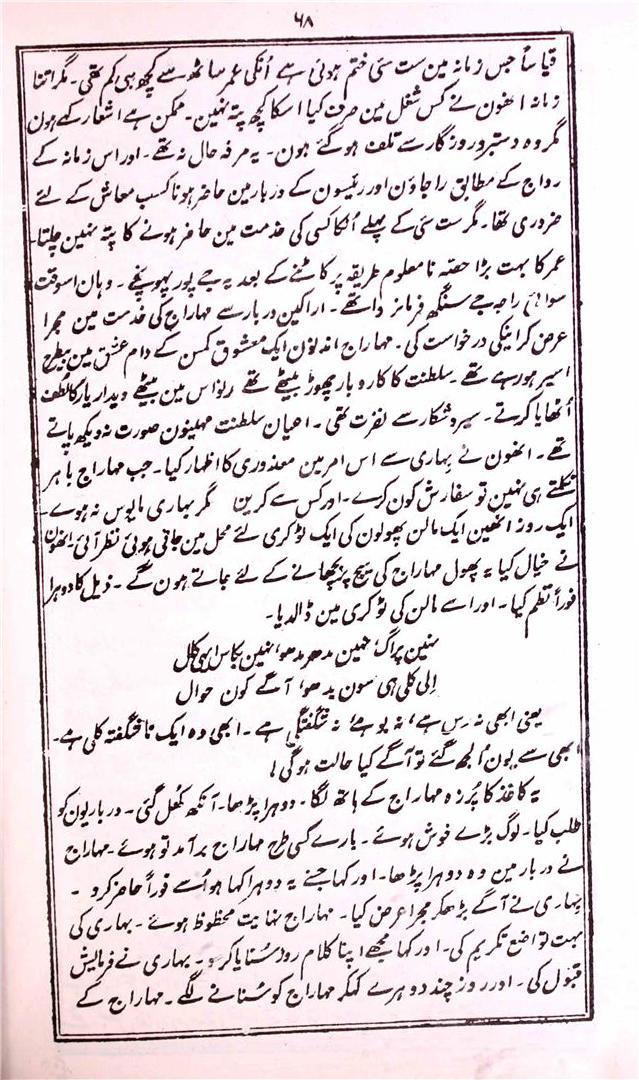 ۶۸
قیاساً جس زمانہ مین ست سئی ختم ہوئی ہے اُنکی عمر ساٹھ سے کچھ ہی کم تھی۔ مگر اتنا
زمانہ انھون نے کس شغل مین صرف کیا اسکا کچھ پتہ نہین۔ ممکن ہے اشعار کہے ہون
مگر وہ دستبرد روزگار سے تلف ہو گئے ہون۔ یہ مرفہ حال نہ تھے۔ اور اس زمانہ کے
رواج کے مطابق راجاؤن اور رئیسون کے دربار مین حاضر ہونا کسب معاش کے لئے
ضروری تھا۔ مگر ست سئی کے پہلے اُنکا کسی کی خدمت مین حاضر ہونے کا پتہ نہین چلتا۔
عمر کا بہت بڑا حصّہ نا معلوم طریقہ پر کاٹنے کے بعد یہ جے پور پہونچے۔ وہان اسوقت
سوائی راجہ جے سنگھ فرمانروا تھے۔ اراکین دربار سے مہاراج کی خدمت مین مجرا
عرض کرانیکی درخواست کی۔ مہاراج اندنون ایک معشوق کمسن کے دام عشق مین بیطرح
اسیر ہو رہے تھے۔ سلطنت کا کاروبار چھوڑ بیٹھے تھے رنواس مین بیٹھے دیدار یار کا لطف
اُٹھایا کرتے۔ سیر و شکار سے نفرت تھی۔ اعیان سلطنت مہینون صورت نہ دیکھ پاتے
تھے۔ انھون نے بہاری سے اس امر مین معذوری کا اظہار کیا۔ جب مہاراج باہر
نکلتے ہی نہین تو سفارش کون کرے۔ اور کس سے کرین مگر بہاری مایوس نہ ہوے۔
ایک روز انھین ایک مالن پھولون کی ایک ٹوکری لئے محل مین جاتی ہوئی نظر آئی۔ انھون
نے خیال کیا یہ پھول مہاراج کی سیج پر بچھانے کے لئے جاتے ہون گے۔ ذیل کا دوہرا
فوراً نظم کیا۔ اور اسے مالن کی ٹوکری مین ڈالدیا۔
نہین پراگ نہین مدھر مدھو، نہین بکاس ایہی کال
الی کلی ہی سون بدھو، آگے کون حوال
یعنی ابھی نہ رس ہے، نہ بو ہے، نہ شگفتگی ہے۔ ابھی وہ ایک ناشگفتہ کلی ہے۔
ابھی سے یون اُلجھ گئے تو آگے کیا حالت ہوگی!
یہ کاغذ کا پُرزہ مہاراج کے ہاتھ لگا۔ دوہرا پڑھا۔ آنکھ کھل گئی۔ درباریون کو
طلب کیا۔ لوگ بڑے خوش ہوئے۔ بارے کسی طرح مہاراج برآمد تو ہوئے۔ مہاراج
نے دربار مین وہ دوہرا پڑھا۔ اور کہا جسنے یہ دوہرا کہا ہو اُسے فوراً حاضر کرو۔
بہاری نے آگے بڑھکر مجرا عرض کیا۔ مہاراج نہایت محظوظ ہوئے۔ بہاری کی
بہت تواضع تکریم کی۔ اور کہا مجھے اپنا کلام روز سُنایا کرو۔ بہاری نے فرمایش
قبول کی۔ اور روز چند دوہرے کہکر مہاراج کو سُنانے لگے۔ مہاراج کے